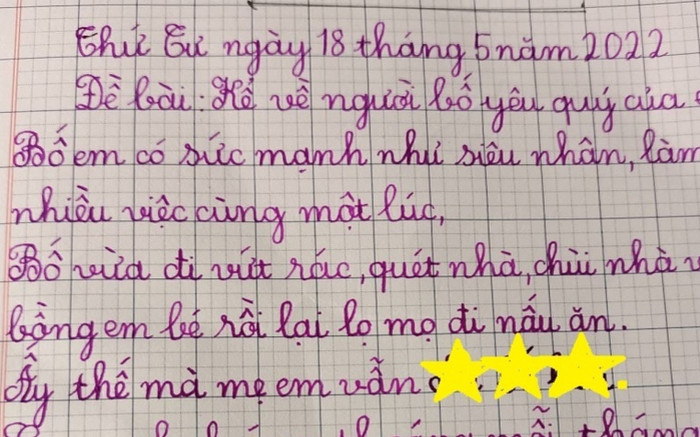 Thứ Tư ngày 18 tháng 5 năm 2022
Đề bài: Kể về người bố yêu quý của
Bố em có sức mạnh như siêu nhân, làm
nhiều việc cùng một lúc,
Bố vừa đi vứt rác, quét nhà, chùi nhà
bồng em bé rồi lại lọ mọ đi nấu ăn.
Ấy thế mà mẹ em vẫn